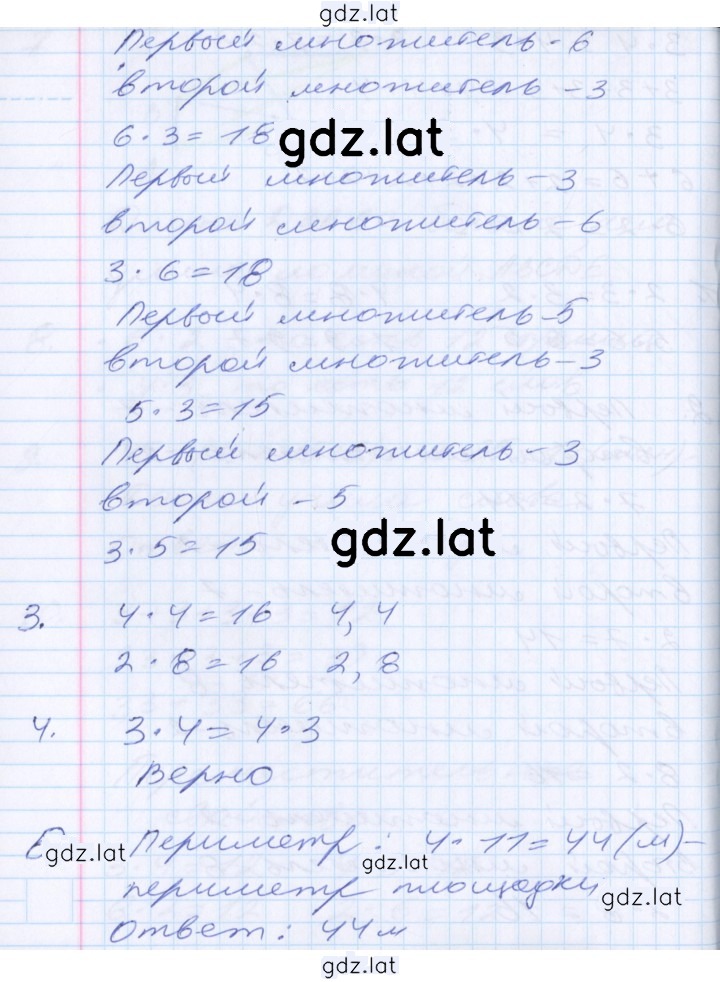 gdz.lat
Первый множитель - 6
второй множитель - 3
6 · 3 = 18
gdz.lat
Первый множитель - 3
второй множитель - 6
3 · 6 = 18
Первый множитель - 5
второй множитель - 3
5 · 3 = 15
Первый множитель - 3
второй - 5
3 · 5 = 15
gdz.lat
3. 4 · 4 = 16 4, 4
2 · 8 = 16 2, 8
4. 3 · 4 = 4 · 3
Верно
Периметр: 4 · 11 = 44 (м) -
gdz.lat
gdz.lat
периметр площадки
gdz.lat
Ответ: 44 м
gdz.lat